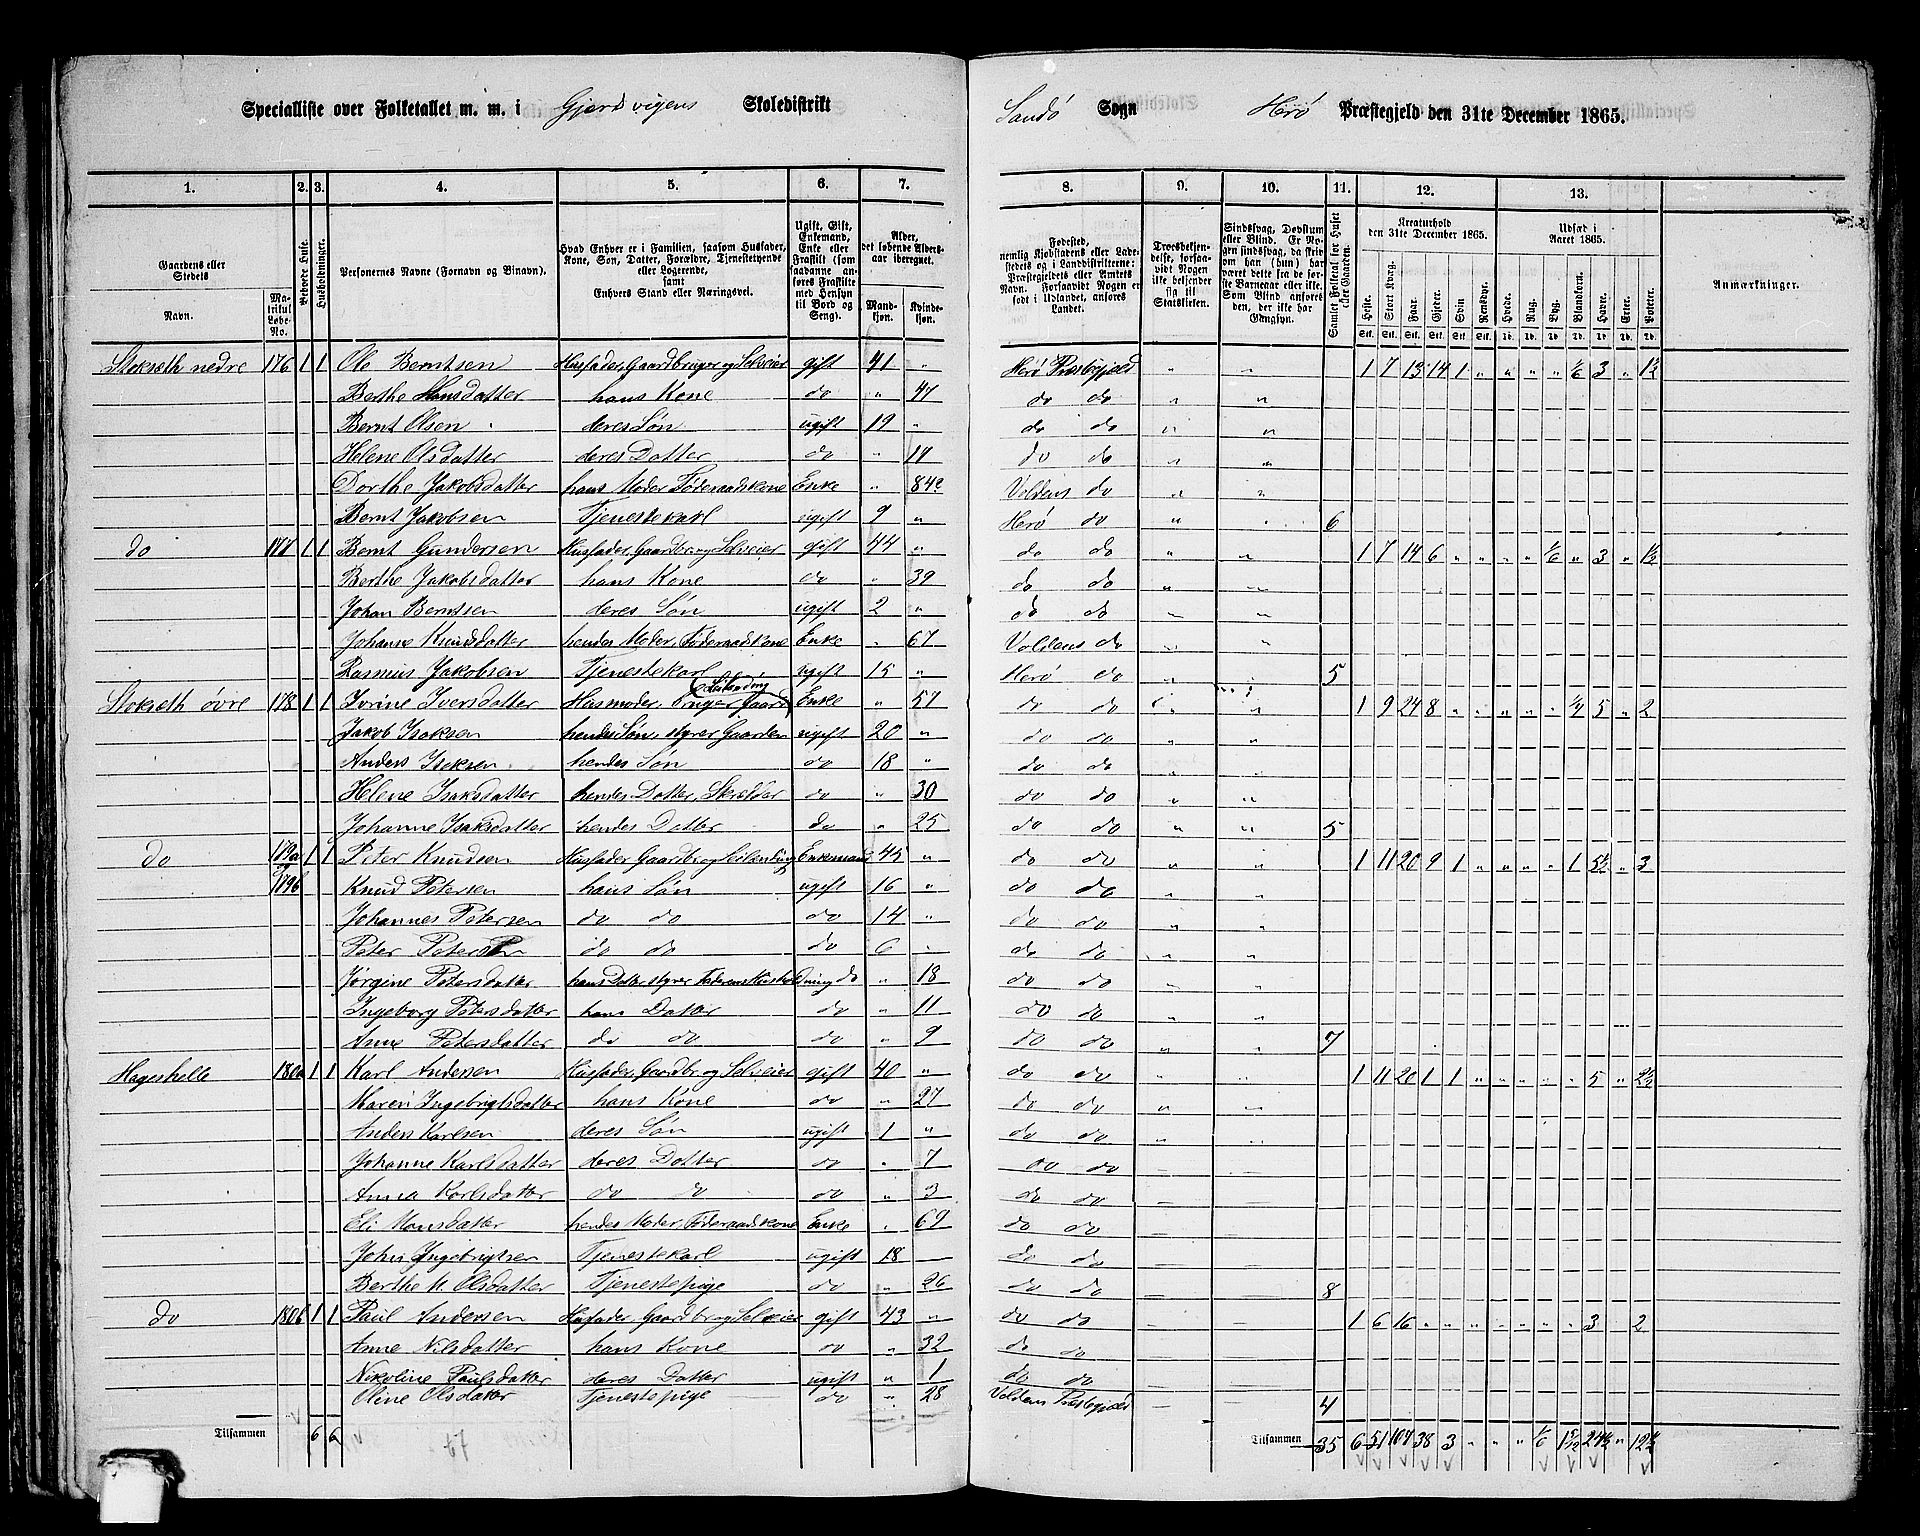 Specialliste over Folketallet m. m. i Gjerdsvigens Skoledistrikt Sandø Sogn Herø Præstegjeld den 31te December 1865.
1. 2. 3. 4. 5. 6. 7. 8. 9. 10. 11. 12. 13.
Gaardens eller Stedets Navn. Matrikul Løbe-No. Beboede Huse. Husholdninger. Personernes Navne (Fornavn og Binavn). Hvad Enhver er i Familien, saasom Husfader, Kone, Søn, Datter, Forældre, Tjenestetyende eller Logerende, samt Enhvers Stand eller Næringsvei. Ugift, Gift, Enkemand, Enke eller Fraskilt (som saadanne anføres Fraskilte med Hensyn til Bord og Seng). Alder, det løbende Aldersaar iberegnet. Mandkjøn. Kvindekjøn. Fødested, nemlig Kjøbstadens eller Ladestedets og i Landdistrikterne: Præstegjeldets eller Amtets Navn. Forsaavidt Nogen er født i Udlandet, anføres Landet. Troesbekjendelse, forsaavidt Nogen ikke bekjender sig til Statskirken. Sindssvag, Døvstum eller Blind. Er Nogen sindssvag, da skrives om han (hun) har været dette fra de første Barneaar eller ikke. Som Blind ansføres den, der ikke har Gangsyn. Samlet Folketal for Huset eller Gaarden. Kreaturhold den 31te December 1865. Heste. Stort Kvæg. Faar. Gjeder. Svin. Rensdyr. Udsæd i Aaret 1865. Hvede. Rug. Byg. Blandkorn. Havre. Erter. Poteter. Anmærkninger.
Stokseth nedre 176 1 1 Ole Berntsen Husfader, Gaardbruger og Selveier gift 41 " Herø Præstegjeld " " 1 7 13 14 1 " " " " 1/6 3 " 1½
Berthe Hansdatter hans Kone do " 47 do do " "
Bernt Olsen deres Søn ugift 19 " do do " "
Helene Olsdatter deres Datter do " 14 do do " "
Dorthe Jakobsdatter hans Moder Føderaadskone Enke " 84 Voldens do " "
Bernt Jakobsen Tjenestekarl ugift 9 " Herø do " 6
do 177 1 1 Bernt Gundersen Husfader, Gaardbr. og Selveier gift 44 " do do " " 1 7 14 6 " " " " 1/6 " 3 " 1½
Berthe Jakobsdatter hans Kone do " 39 do do " "
Johan Berntsen deres Søn ugift 2 " do do " "
Johanne Knudsdatter hendes Moder, Føderaadskone Enke " 67 Voldens do " "
Rasmus Jakobsen Tjenestekarl ugift 15 " Herø do " 5
Stokseth øvre 178 1 1 Ivrine Iversdatter Husmoder, bruger Gaard Enke " 57 do do " 1 9 24 8 " " " " " 1/4 5 " 2
Jakob Isaksen hendes Søn, styrer Gaarden ugift 20 " do do " "
Anders Isaksen hendes Søn do 18 " do do "
Helene Isaksdatter hendes Datter, Skrædder do " 30 do do " "
Johanne Isaksdatter hendes Datter do " 25 do do " " 5
do 179a 1 1 Peter Knudsen Husfader, Gaardbr og Leilending Enkemand 45 " do do " " 1 11 20 9 1 " " " " 1 5½ " 3
179b Knud Petersen hans Søn ugift 16 " do do " "
Johannes Petersen do do do 14 " do do " "
Peter Petersen do do do 6 " do do " "
Jørgine Petersdatter hans Datter, styrer Faderens Husholdning do " 18 do do " "
Ingeborg Petersdatter hans Datter do " 11 do do " "
Anne Petersdatter do do do " 9 do do " " 7
Hageskelle 180a 1 1 Karl Andersen Husfader, Gaardbr. og Selveier gift 40 " do do " " 1 11 20 1 1 " " " " " 5 " 2½
Maren Ingebrigtsdatter hans Kone do " 27 do do " "
Anders Karlsen deres Søn ugift 1 " do do " "
Johanne Karlsdatter deres Datter do " 7 do do
Anna Karlsdatter do do do " 3 do do
Eli Monsdatter hendes Moder, Føderaadskone Enke " 69 do do
John Ingebrigtsen Tjenestekarl ugift 18 do do
Berthe M. Olsdatter Tjenestepige do " 26 do do 8
do 180b 1 1 Paul Andersen Husfader, Gaardbr og Selveier gift 43 " do do 1 6 16 " " " " " " " 3 " 2
Anne Nilsdatter hans Kone do " 32 do do
Nikoline Paulsdatter deres Datter ugift " 1 do do
Oline Olsdatter Tjenestepige do " 28 Voldens Præstegjeld 4
Tilsammen 6 6 Tilsammen 35 6 51 107 38 3 " " " 1/6 1 5/12 24½ " 12½